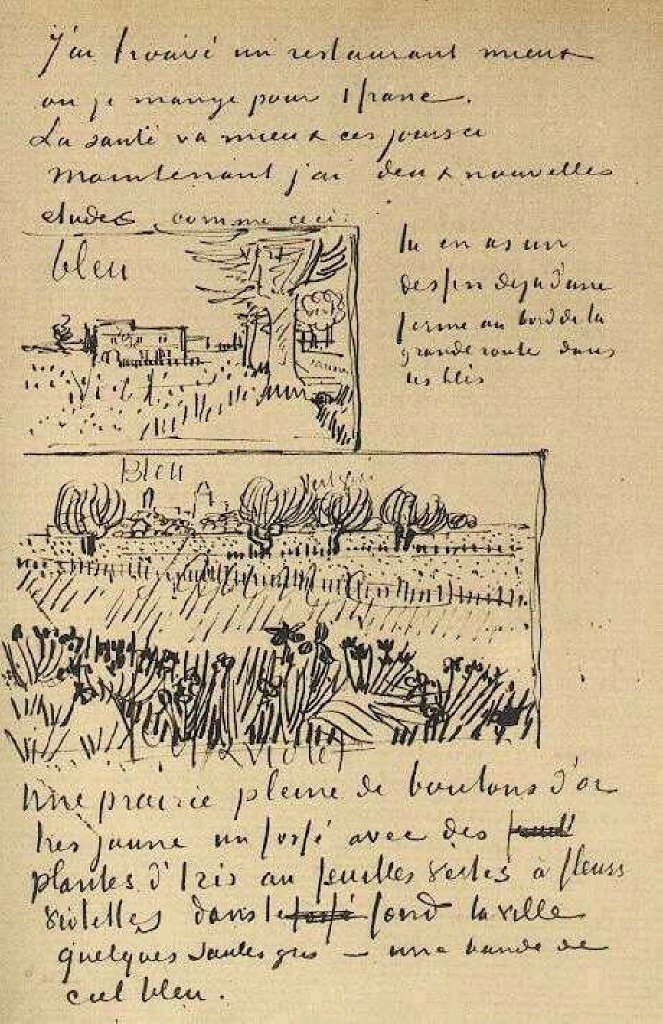 J'ai trouvé un restaurant mieux
ou je mange pour 1 franc.
La santé va mieux ces jours ci
Maintenant j'ai deux nouvelles
etudes comme ceci:
bleu
vert
jaune
tu en as un
dessin deja d'une
ferme au bord de la
grande route dans
les blés
Bleu
vert gris
violet
Une prairie pleine de boutons d'or
tres jaune un fossé avec des
plantes d'Iris au feuilles vertes à fleurs
violettes dans le fossé fond la ville
quelques saules gris — une bande de
ciel bleu.